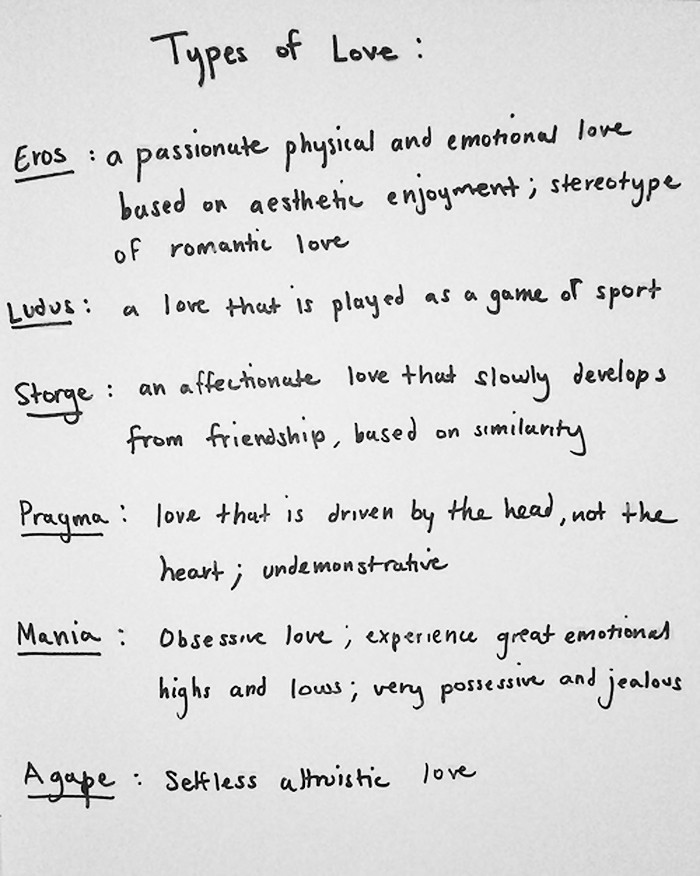 Types of Love :
Eros : a passionate physical and emotional love
based on aesthetic enjoyment; stereotype
of romantic love
Ludus : a love that is played as a game or sport
Storge : an affectionate love that slowly develops
from friendship, based on similarity
Pragma : love that is driven by the head, not the
heart; undemonstrative
Mania : Obsessive love; experience great emotional
highs and lows; very possessive and jealous
Agape : Selfless altruistic love